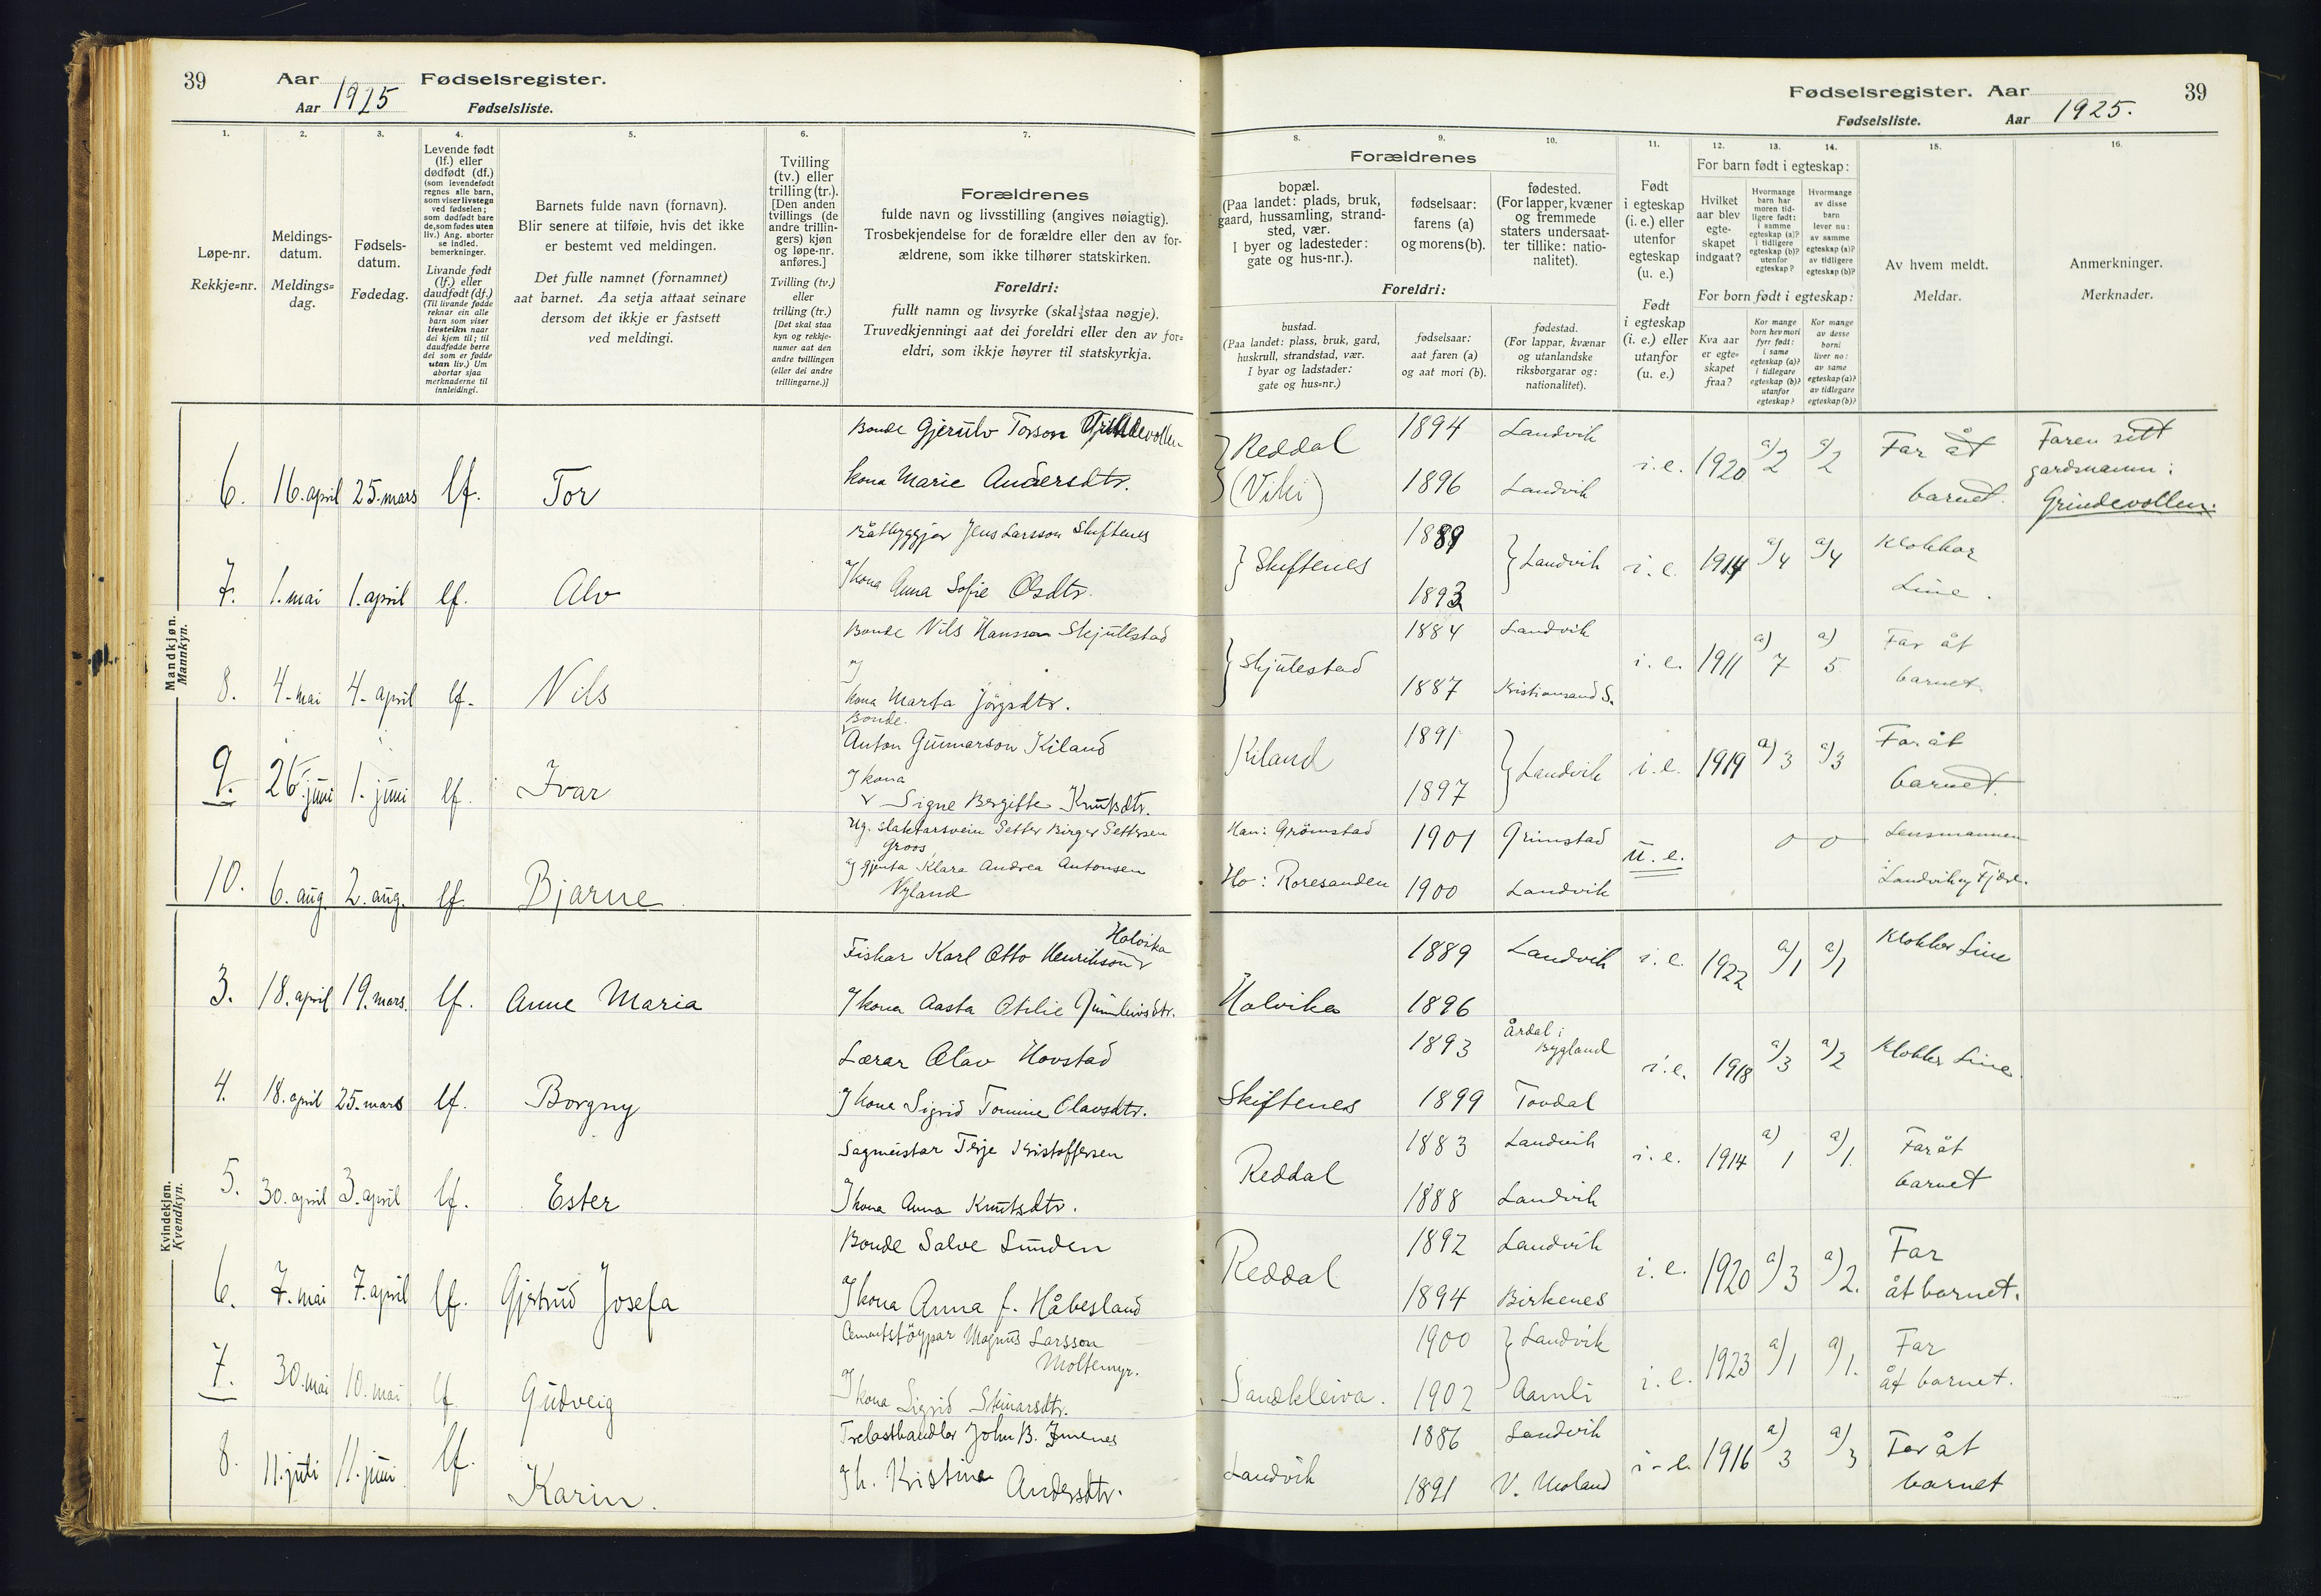 39 Aar Fødselsregister.
Aar 1925 Fødselsliste.
1. 2. 3. 4. 5. 6. 7.
Løpe-nr.
Rekkje=nr.
Meldings-
datum.
Meldings=
dag.
Fødsels-
datum.
Fødedag.
Levende født
(lf.) eller
dødfødt (df.)
(som levendefødt
regnes alle barn,
som viser livstegn
ved fødselen;
som dødfødt bare
de, som fødes uten
liv.) Ang. aborter
se indled.
bemerkninger.
Livande født
(lf.) eller
daudfødt (df.)
(Til livande fødde
reknar ein alle
barn som viser
livsteikn naar
dei kjem til; til
daudfødde berre
dei som er fødde
utan liv.) Um
abortar sjaa
merknaderne til
innleidingi.
Barnets fulde navn (fornavn).
Blir senere at tilføie, hvis det ikke
er bestemt ved meldingen.
Det fulle namnet (fornamnet)
aat barnet. Aa setja attaat seinare
dersom det ikkje er fastsett
ved meldingi.
Tvilling
(tv.) eller
trilling (tr.).
[Den anden
tvillings (de
andre trillin-
gers) kjøn
og løpe-nr.
anføres.]
Tvilling (tv.)
eller
trilling (tr.)
[Det skal staa
kyn og rekkje-
numer aat den
andre tvillingen
(eller dei andre
trillingarne.)]
Forældrenes
fulde navn og livsstilling (angives nøiagtig).
Trosbekjendelse for de forældre eller den av for-
ældrene, som ikke tilhører statskirken.
Foreldri:
fullt namn og livsyrke (skal staa nøgje).
Truvedkjenningi aat dei foreldri eller den av for=
eldri, som ikkje høyrer til statskyrkja.
Mandkjøn.
Mannkyn.
Bonde Gjerulv Torson Grindevollen
6. 16. april 25. mars lf. Tor kona Marie Andersdtr.
Båtbyggjar Jens Larsson Skiftenes
7. 1. mai 1. april lf. Alv og kona Anna Sofie Olsdtr.
Bonde Nils Hansson Skjullestad
og
8. 4. mai 4. april lf. Nils kona Marta Jörgsdtr.
Bonde
Anton Gunnarson Kiland
og kona
9. 26. juni 1. juni lf. Ivar Signe Bergitte Knutsdtr.
Ug. slaktarsvein Petter Birger Pettersen
Groos,
og gjenta Klara Andrea Antonsen
10. 6. aug. 2. aug. lf. Bjarne Nyland
Kvindekjøn.
Kvendkyn.
Holvika
Fiskar Karl Otto Henrikson
3. 18. april 19. mars. lf. Anne Maria og kona Aasta Otilie Gunleivsdtr.
Lærar Olav Hovstad
4. 18. april 25. mars lf. Borgny og kona Sigrid Tomine Olavsdtr.
Sagmeistar Terje Kristoffersen
5. 30. april 3. april lf. Ester og kona Anna Knutsdtr.
Bonde Salve Lunden
6. 7. mai 7. april lf. Gjertrud Josefa og kona Anna f. Håbesland
Cementstöypar Magnus Larsson
Moltemyr.
7. 30. mai 10. mai lf. Gudveig og kona Sigrid Steinarsdtr.
Trelasthandlar John B.
8. 11. juli 11. juni lf. Karin. og k. Kristine Andersdtr.
Fødselsregister. Aar 39
Fødselsliste. Aar 1925.
8. 9. 10. 11. 12. 13. 14. 15. 16.
Forældrenes
bopæl.
(Paa landet: plads, bruk,
gaard, hussamling, strand-
sted, vær.
I byer og ladesteder:
gate og hus-nr.).
fødselsaar:
farens (a)
og morens (b).
fødested.
(For lapper, kvæner
og fremmede
staters undersaat-
ter tillike: natio-
nalitet).
Foreldri:
bustad.
(Paa landet: plass, bruk, gard,
huskrull, strandstad, vær.
I byar og ladstader:
gate og hus=nr.)
fødselsaar:
aat faren (a)
og aat mori (b).
fødestad.
(For lappar, kvænar
og utanlandske
riksborgarar og:
nationalitet).
Født
i egteskap
(i. e.) eller
utenfor
egteskap
(u. e.)
Født
i egteskap
(i. e.) eller
utanfor
(u. e.)
For barn født i egteskap:
Hvilket
aar blev
egte-
skapet
indgaat?
Hvormange
barn har
moren tid-
ligere født:
i samme
egteskap (a)?
i tidligere
egteskap (b)?
utenfor
egteskap?
Hvormange
av disse
barn
lever nu:
av samme
egteskap (a)?
av tidligere
egteskap (b)?
For born født i egteskap:
Kva aar
er egte=
skapet
fraa?
Kor mange
born hev mori
fyrr født:
i same
egteskap (a)?
i tidlegare
egteskap (b)?
utanfor
egteskap?
Kor mange
av desse
borni
liver no:
av same
egteskap (a)?
av tidlegare
egteskap (b)?
Av hvem meldt.
Meldar.
Anmerkninger.
Merknader.
Reddal 1894 Landvik i. e. 1920 a/2 a/2 Far åt Faren sitt
(Viki) 1896 Landvik barnet. gardsnamn:
Grindevollen.
Skiftenes 1889 Landvik i. e. 1914 a/4 a/4 Klokkar
1893 Line.
Skjulestad 1884 Landvik i. e. 1911 a) 7 a) 5 Far åt
1887 Kristiansand S. barnet.
Kiland 1891 Landvik i. e. 1919 a) 3 a/3 Far åt
1897 barnet.
Han: Grömstad 1901 Grimstad u. e. 0 0 Lensmannen
Ho: Roresanden 1900 Landvik i Landvik og Fjære.
1889 Landvik i. e. 1922 a/1 a/1 Klokker Line
Holvika 1896
1893 Årdal i
Bygland i. e. 1918 a/3 a/2 Klokker Line.
Skiftenes 1899 Tovdal
Reddal 1883 Landvik i. e. 1914 a) 1 a/1. Far åt
1888 Landvik barnet
Reddal 1892 Landvik i. e. 1920 a/3 a/2. Far
1894 Birkenes åt barnet.
1900 Landvik i. e. 1923 a/1 a/1. Far
Sandkleiva. 1902 Aamli åt barnet.
1886 Landvik i. e. 1916 a) 3 a/3 Far åt
Landvik 1891 V. Moland barnet